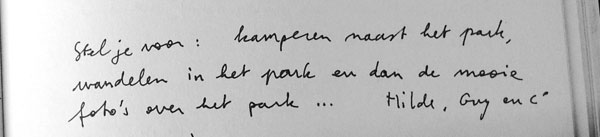 Stel je voor : kamperen naast het park,
wandelen in het park en dan de mooie
foto's over het park ... Hilde, Guy en C°